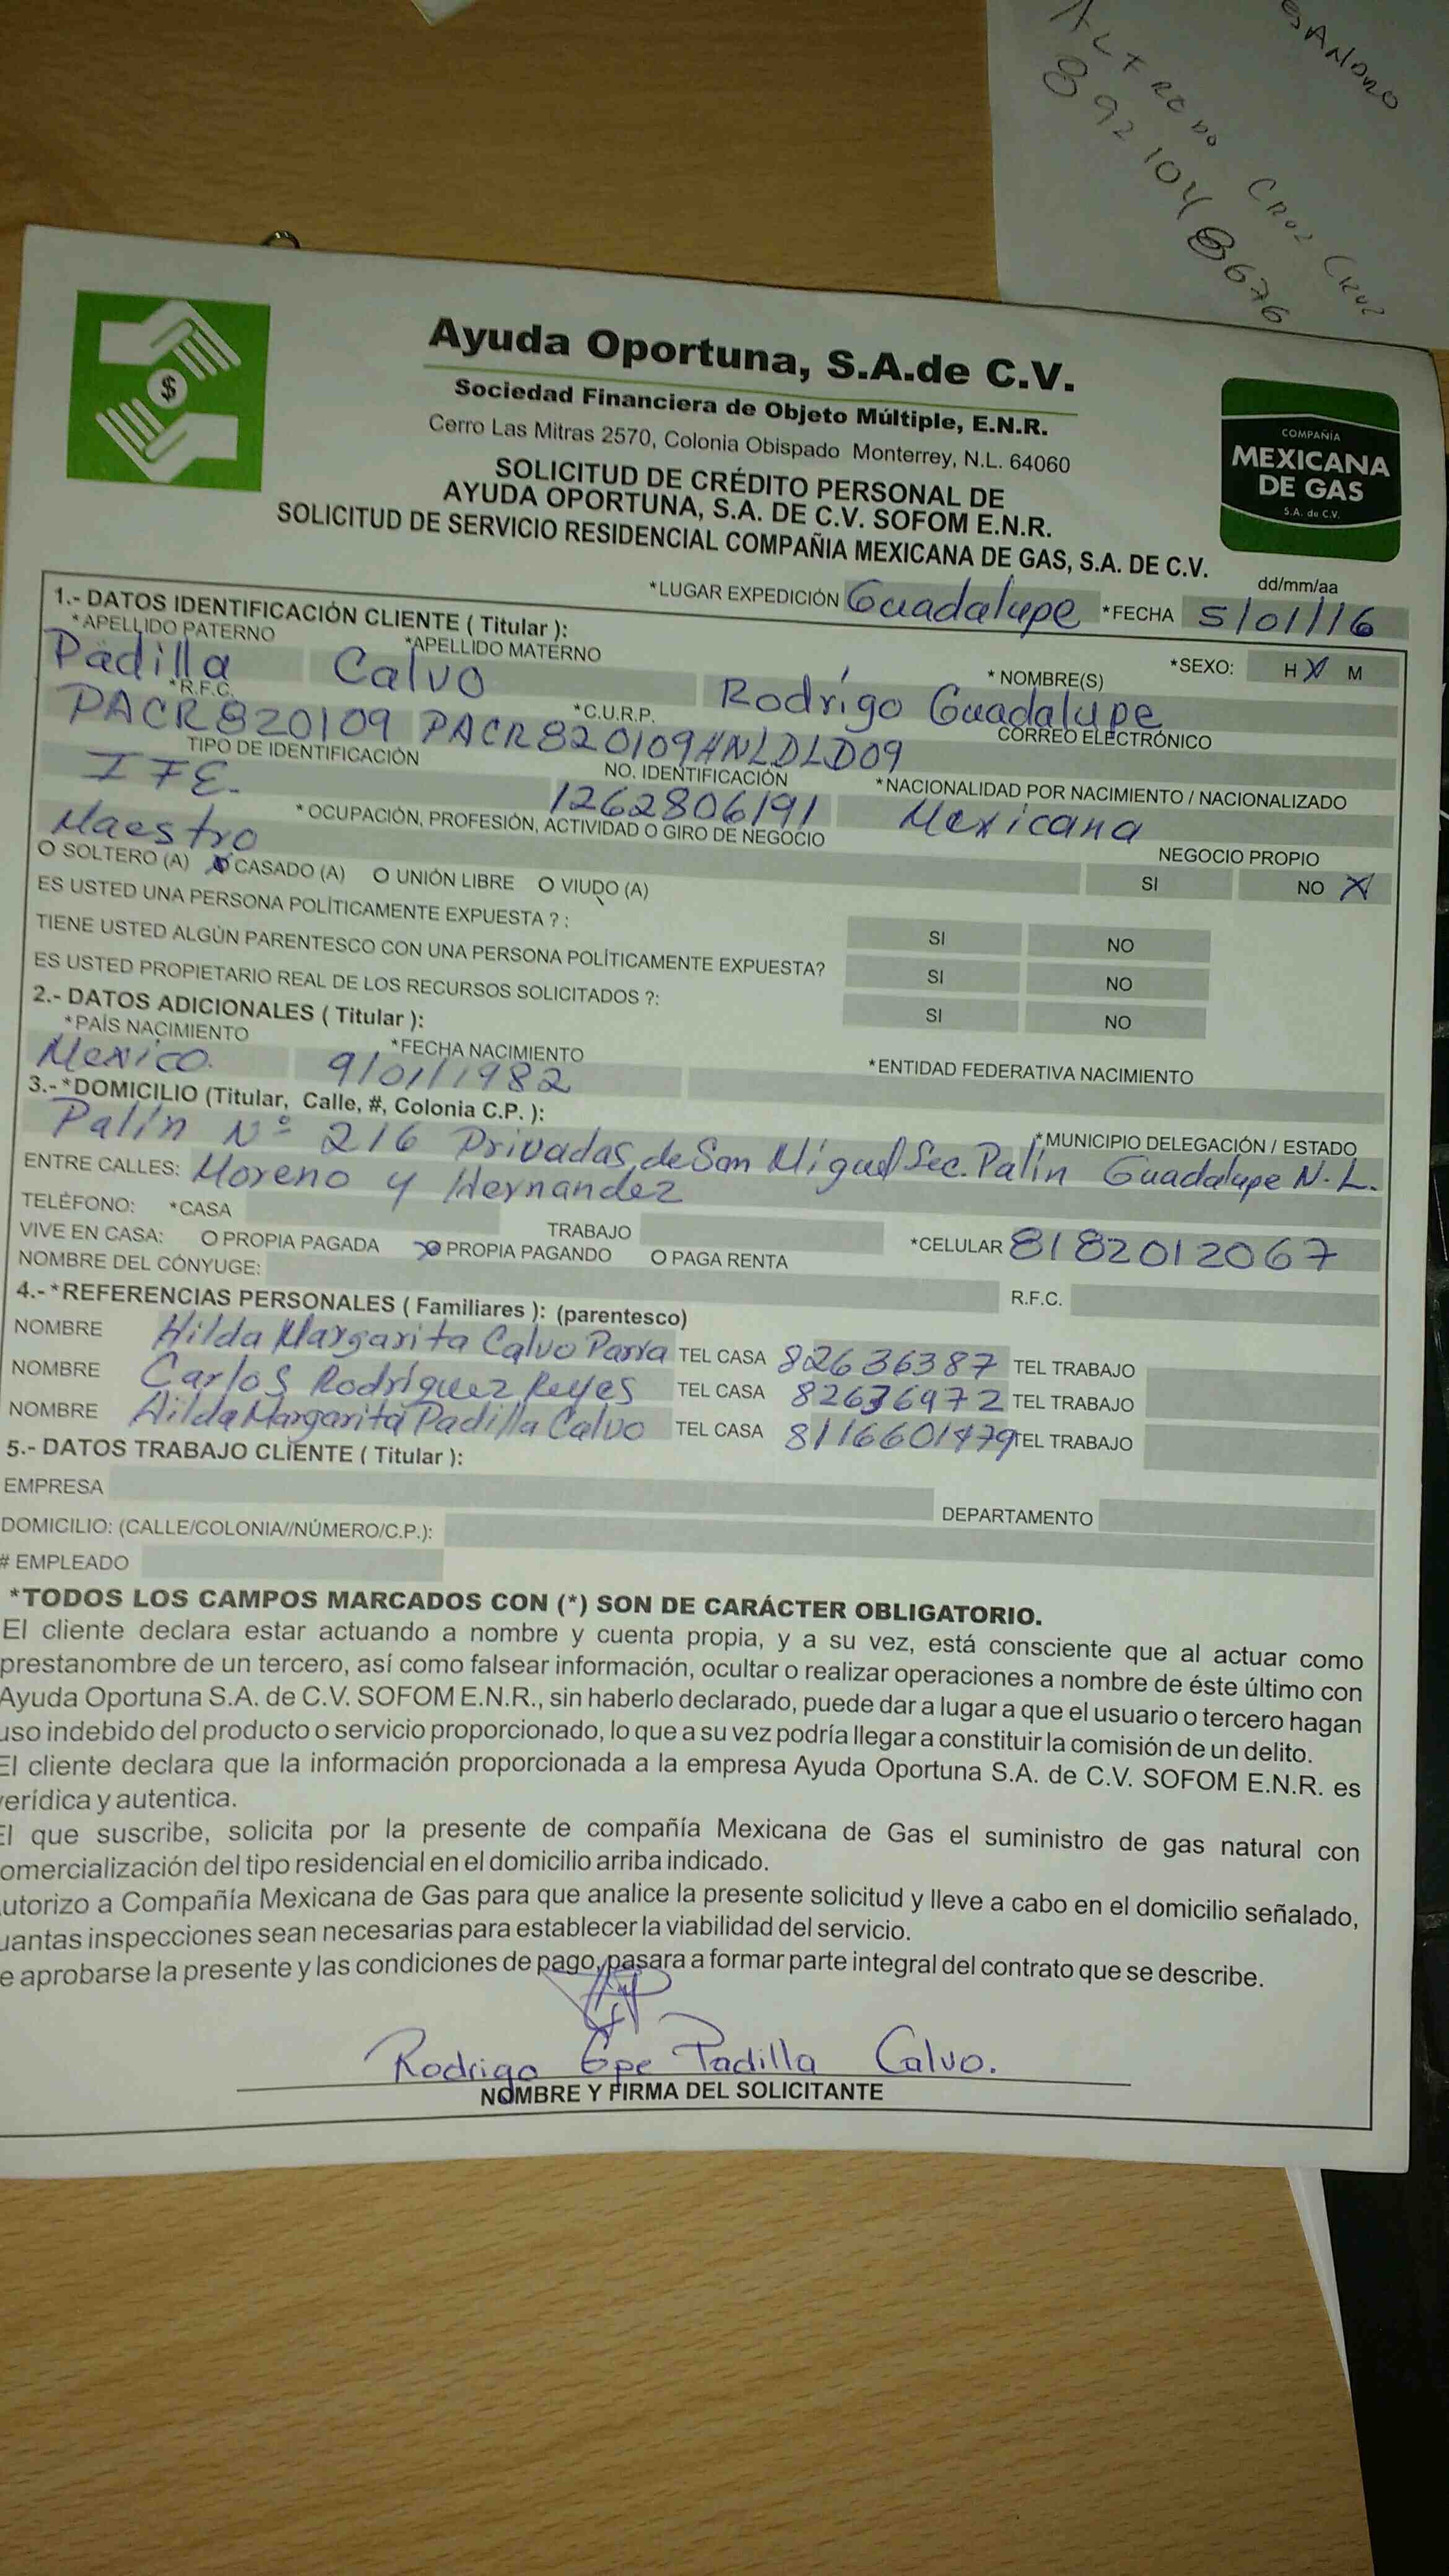 ESANDRO
ALFREDO CRUZ CRUZ
892 104 8676
Ayuda Oportuna, S.A.de C.V.
Sociedad Financiera de Objeto Múltiple, E.N.R.
Cerro Las Mitras 2570, Colonia Obispado Monterrey, N.L. 64060
SOLICITUD DE CRÉDITO PERSONAL DE
AYUDA OPORTUNA, S.A. DE C.V. SOFOM E.N.R.
SOLICITUD DE SERVICIO RESIDENCIAL COMPAÑIA MEXICANA DE GAS, S.A. DE C.V.
$
COMPAÑÍA
MEXICANA
DE GAS
S.A. de C.V.
dd/mm/aa
*LUGAR EXPEDICIÓN Guadalupe *FECHA 5/01/16
1.- DATOS IDENTIFICACIÓN CLIENTE ( Titular ):
*APELLIDO PATERNO *APELLIDO MATERNO * NOMBRE(S) *SEXO: H X M
Padilla Calvo Rodrigo Guadalupe
*R.F.C. *C.U.R.P. CORREO ELECTRÓNICO
PACR820109 PACR820109HNLDLD09
TIPO DE IDENTIFICACIÓN NO. IDENTIFICACIÓN *NACIONALIDAD POR NACIMIENTO / NACIONALIZADO
IFE. 1262806191 Mexicana
* OCUPACIÓN, PROFESIÓN, ACTIVIDAD O GIRO DE NEGOCIO NEGOCIO PROPIO
Maestro SI NO X
O SOLTERO (A) X CASADO (A) O UNIÓN LIBRE O VIUDO (A)
ES USTED UNA PERSONA POLÍTICAMENTE EXPUESTA ? : SI NO
TIENE USTED ALGÚN PARENTESCO CON UNA PERSONA POLÍTICAMENTE EXPUESTA? SI NO
ES USTED PROPIETARIO REAL DE LOS RECURSOS SOLICITADOS ?: SI NO
2.- DATOS ADICIONALES ( Titular ):
*PAÍS NACIMIENTO *FECHA NACIMIENTO *ENTIDAD FEDERATIVA NACIMIENTO
Mexico. 9/01/1982
3.-*DOMICILIO (Titular, Calle, #, Colonia C.P. ): *MUNICIPIO DELEGACIÓN / ESTADO
Palín Nº 216 Privadas de San Miguel Sec. Palín Guadalupe N.L.
ENTRE CALLES: Moreno y Hernandez
TELÉFONO: *CASA TRABAJO *CELULAR 8182012067
VIVE EN CASA: O PROPIA PAGADA X PROPIA PAGANDO O PAGA RENTA
NOMBRE DEL CÓNYUGE: R.F.C.
4.-*REFERENCIAS PERSONALES ( Familiares ): (parentesco)
NOMBRE Hilda Margarita Calvo Parra TEL CASA 82636387 TEL TRABAJO
NOMBRE Carlos Rodríguez Reyes TEL CASA 82636972 TEL TRABAJO
NOMBRE Hilda Margarita Padilla Calvo TEL CASA 8116601479 TEL TRABAJO
5.- DATOS TRABAJO CLIENTE ( Titular ):
EMPRESA DEPARTAMENTO
DOMICILIO: (CALLE/COLONIA//NÚMERO/C.P.):
# EMPLEADO
*TODOS LOS CAMPOS MARCADOS CON (*) SON DE CARÁCTER OBLIGATORIO.
El cliente declara estar actuando a nombre y cuenta propia, y a su vez, está consciente que al actuar como
prestanombre de un tercero, así como falsear información, ocultar o realizar operaciones a nombre de éste último con
Ayuda Oportuna S.A. de C.V. SOFOM E.N.R., sin haberlo declarado, puede dar a lugar a que el usuario o tercero hagan
uso indebido del producto o servicio proporcionado, lo que a su vez podría llegar a constituir la comisión de un delito.
El cliente declara que la información proporcionada a la empresa Ayuda Oportuna S.A. de C.V. SOFOM E.N.R. es
verídica y autentica.
El que suscribe, solicita por la presente de compañía Mexicana de Gas el suministro de gas natural con
omercialización del tipo residencial en el domicilio arriba indicado.
utorizo a Compañía Mexicana de Gas para que analice la presente solicitud y lleve a cabo en el domicilio señalado,
uantas inspecciones sean necesarias para establecer la viabilidad del servicio.
e aprobarse la presente y las condiciones de pago, pasara a formar parte integral del contrato que se describe.
Rodrigo Gpe Padilla Calvo.
NOMBRE Y FIRMA DEL SOLICITANTE